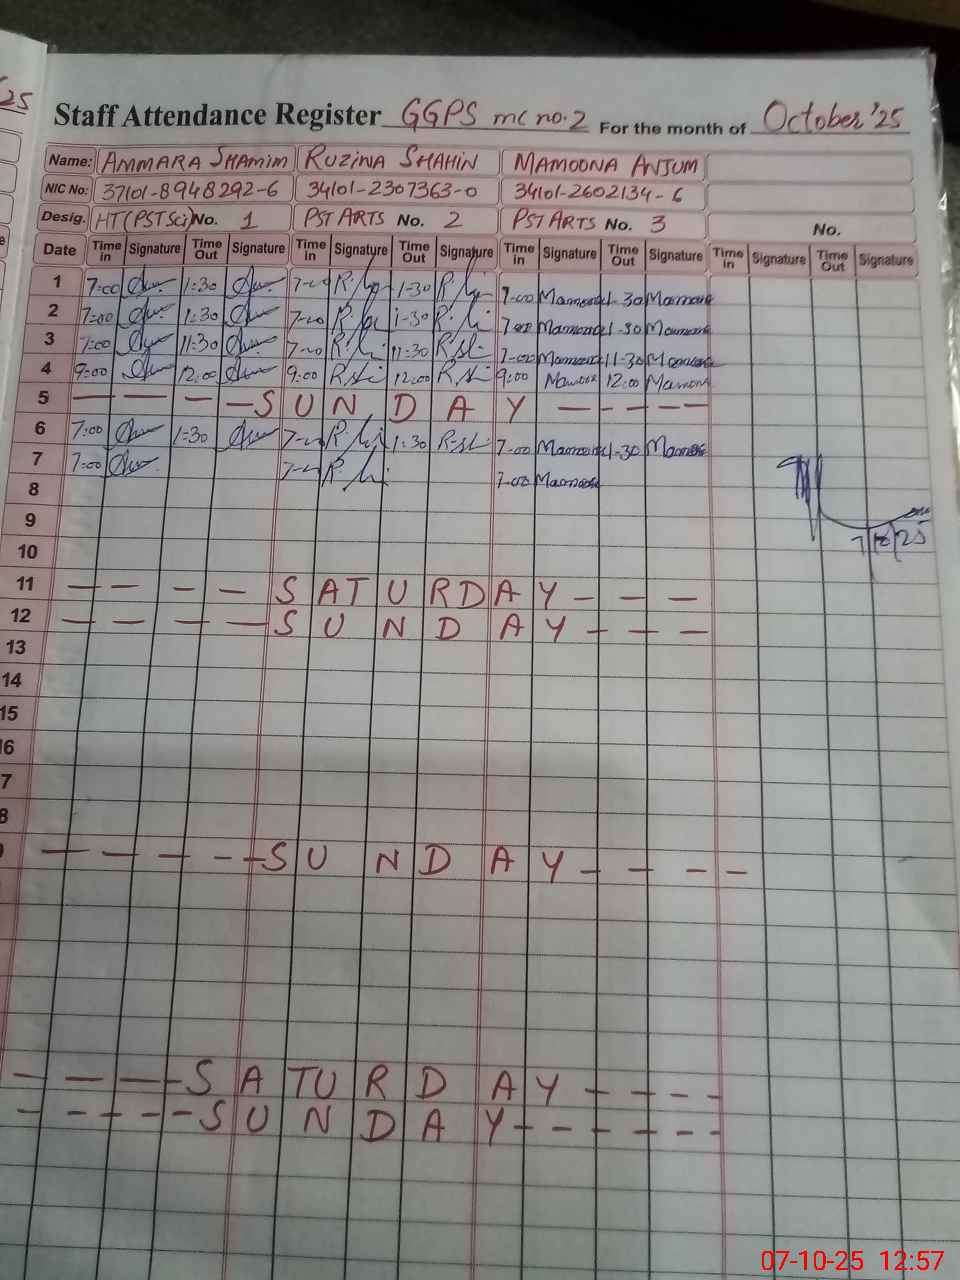 25
Staff Attendance Register GGPS mc no.2 For the month of October'25
Name: AMMARA SHAMIM RUZINA SHAHIN MAMOONA ANJUM
NIC No: 37101-8948292-6 34101-2307363-0 34101-2602134-6
Desig. HT(PST Sci) No. 1 PST ARTS No. 2 PST ARTS No. 3 No.
Date Time in Signature Time Out Signature Time in Signature Time Out Signature Time in Signature Time Out Signature Time in Signature Time Out Signature
1 7:00 1:30 7-00 1-30 7-00 Mamoona 1-30 Mamoona
2 7:00 1:30 7-00 1-30 7-00 Mamoona 1-30 Mamoona
3 7:00 11:30 7-00 11:30 7-00 Mamoona 11-30 Mamoona
4 9:00 12:00 9:00 12:00 9:00 Mamoona 12:00 Mamoona
5 — — — — SUNDAY — — — — —
6 7:00 1:30 7-00 1:30 7-00 Mamoona 1-30 Mamoona
7 7:00 7-00 7-00 Mamoona
8
9 7/10/25
10
11 — — — — SATURDAY — — —
12 — — — — SUNDAY — — —
13
14
15
16
7
8
— — — — — SUNDAY — — — —
— — — — SATURDAY — — — —
— — — — — SUNDAY — — — — — —
07-10-25 12:57